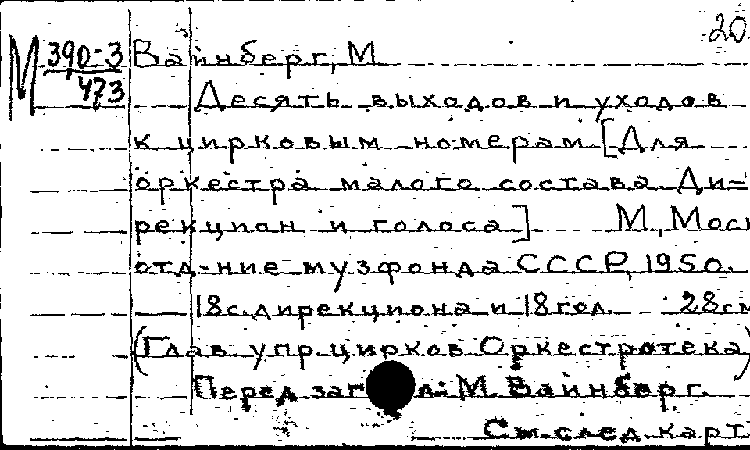 20
М 390-3 Вайнберг, М
473
Десять выходов и уходов
к цирковым номерам [Для
оркестра малого состава Ди-
рекцион и голоса] М, Моск
отд-ние музфонда СССР, 1950.
18с. дирекциона и 18 гол. 28см
(Глав упр. цирков Оркестротека)
Перед заг л: М. Вайнберг.
См. след. карт.